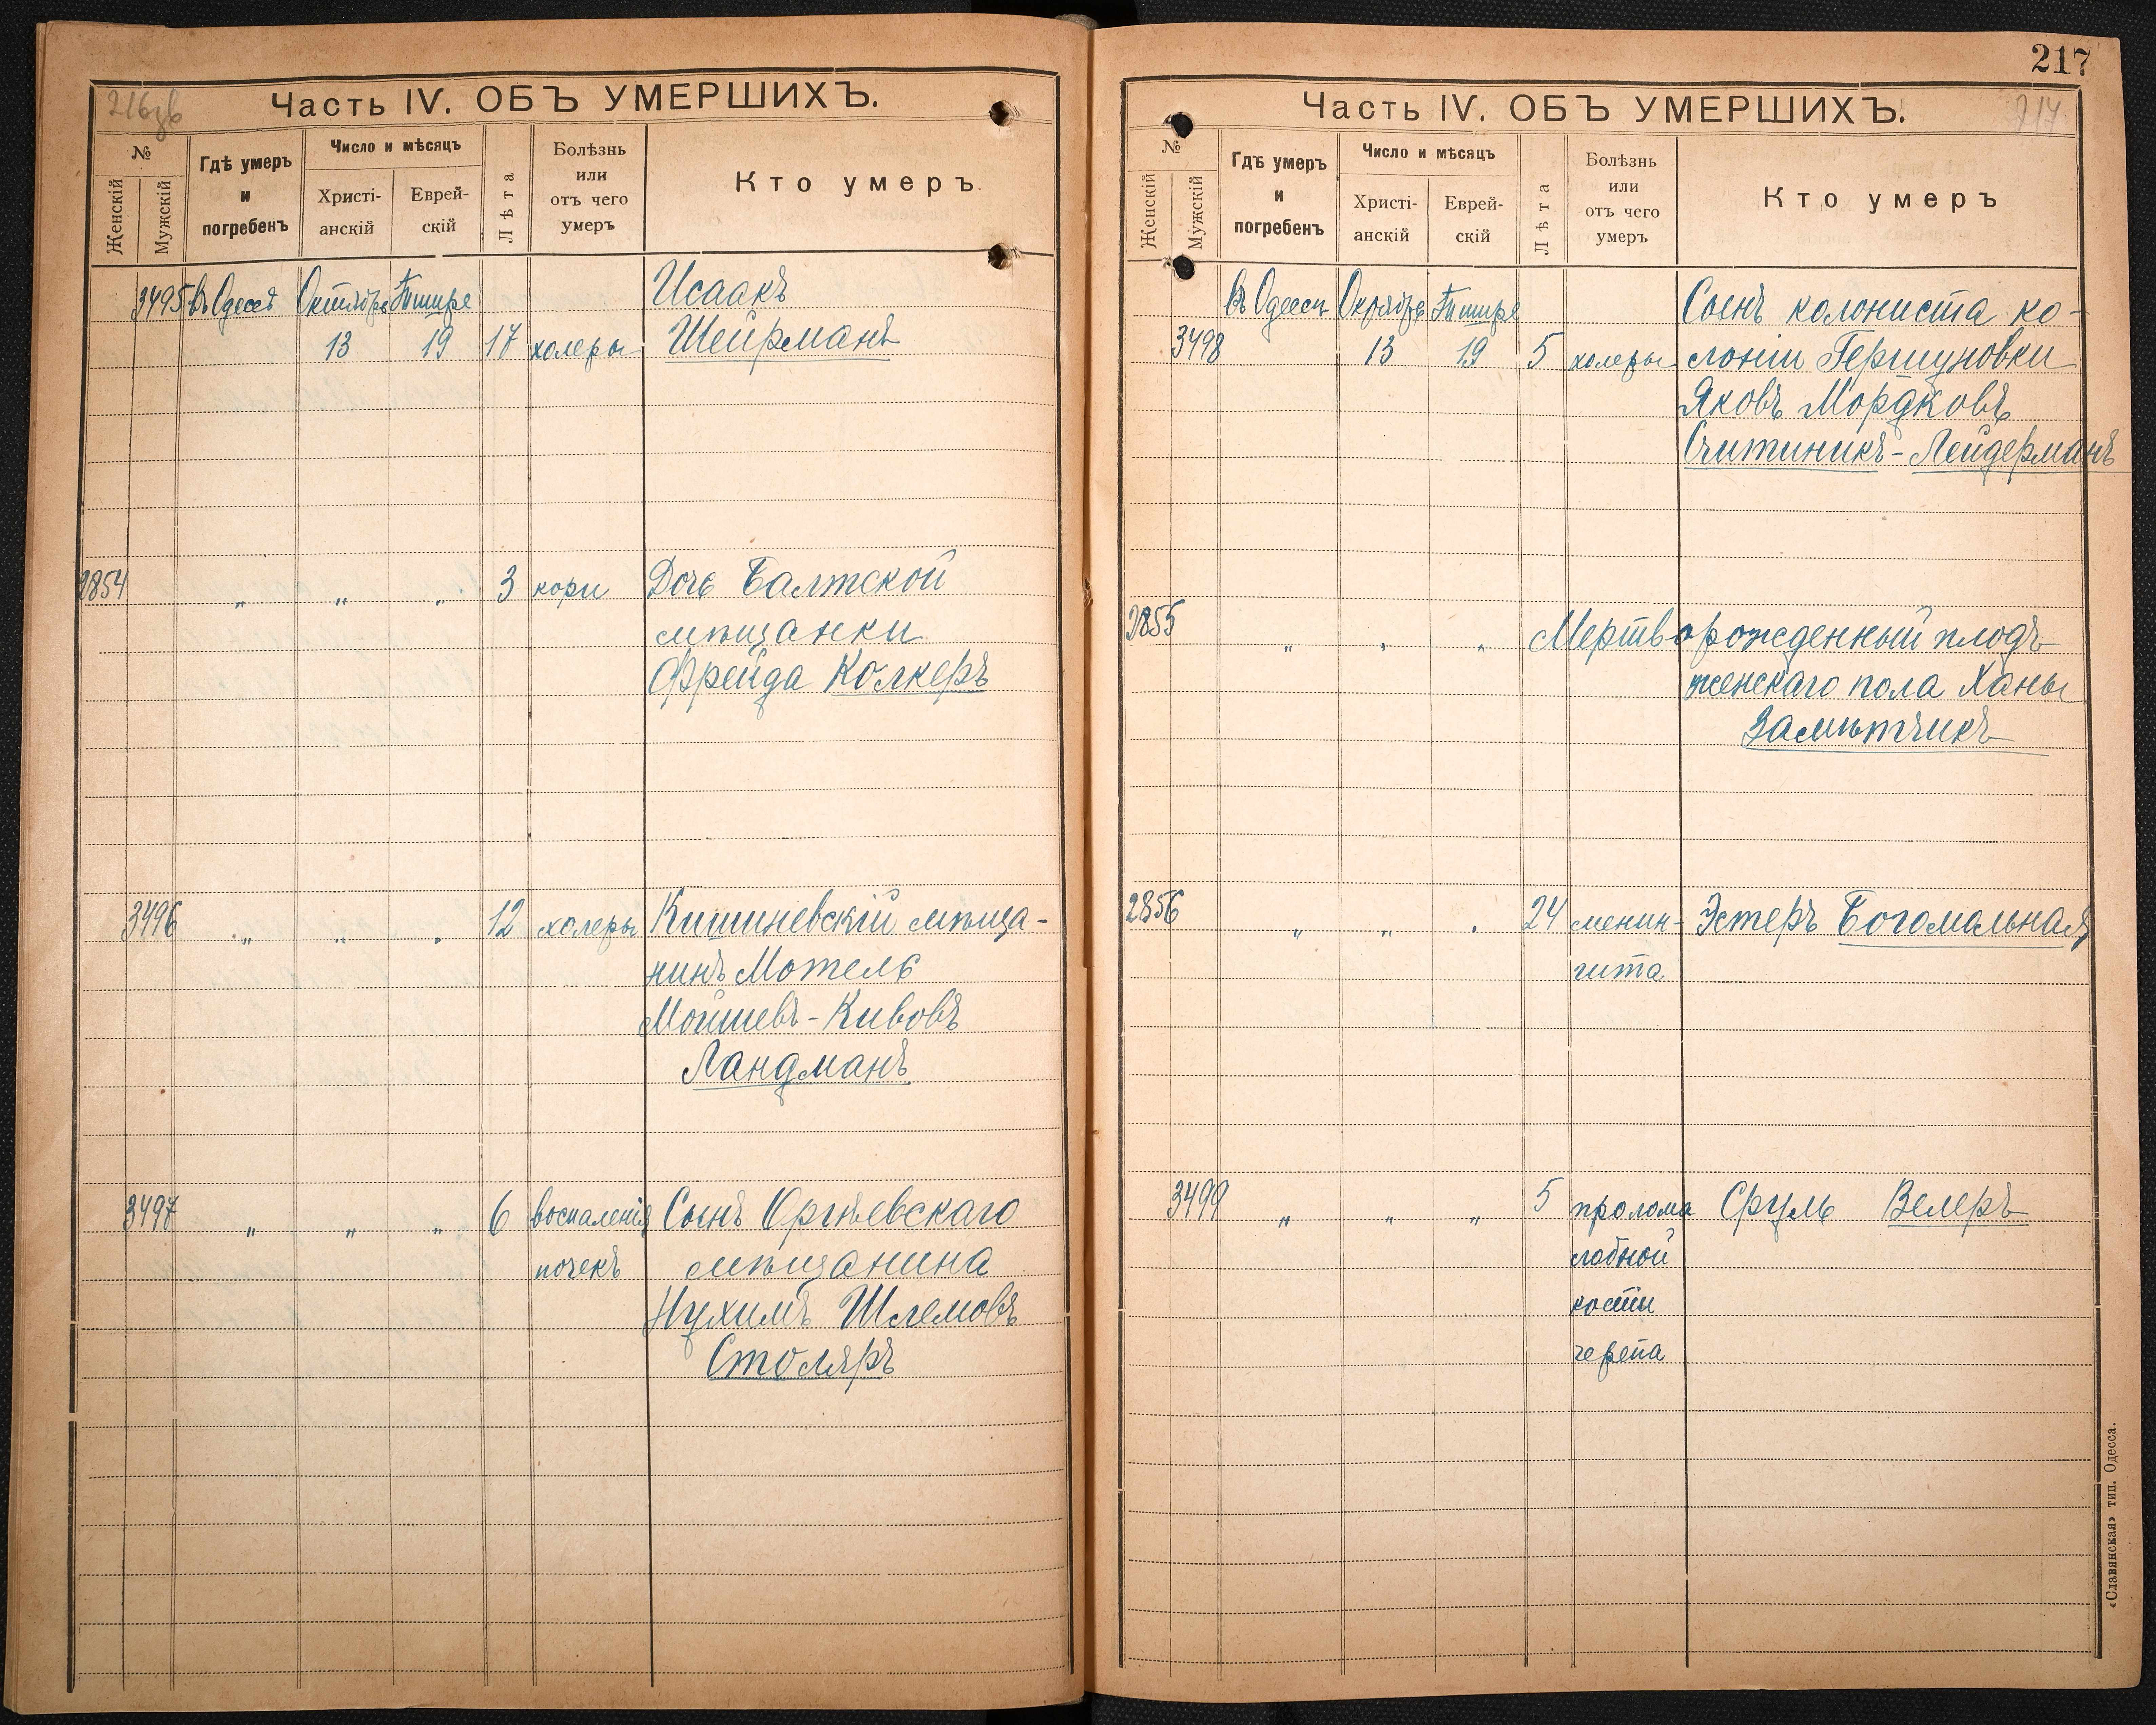 216 зв
Часть IV. ОБЪ УМЕРШИХЪ.
№
Женскій
Мужскій
Гдѣ умеръ
и
погребенъ
Число и мѣсяцъ
Христі-
анскій
Еврей-
скій
Лѣта
Болѣзнь
или
отъ чего
умеръ
Кто умеръ
3495 въ Одессѣ Октября Тишре Исаакъ
13 19 17 холеры Шейрманъ
2854 „ „ „ 3 кори Дочь Балтской
мѣщанки
Фрейда Колкеръ
3496 „ „ „ 12 холеры Кишиневскій мѣща-
нинъ Мотель
Мойшевъ-Кивовъ
Ландманъ
3497 „ „ „ 6 воспаленія Сынъ Оргѣевскаго
почекъ мѣщанина
Нухимъ Шлемовъ
Столяръ
217
Часть IV. ОБЪ УМЕРШИХЪ.
217
№
Женскій
Мужскій
Гдѣ умеръ
и
погребенъ
Число и мѣсяцъ
Христі-
анскій
Еврей-
скій
Лѣта
Болѣзнь
или
отъ чего
умеръ
Кто умеръ
въ Одессѣ Октября Тишре Сынъ колониста ко-
3498 13 19 5 холеры лоніи Гершуновки
Яковъ Мордковъ
Лейдерманъ
2855 „ „ „ Мертворожденный плодъ
женскаго пола Ханы
Замѣтчикъ
2856 „ „ „ 24 менин- Эстеръ Богомальная
гита
3499 „ „ „ 5 пролома Сруль Велеръ
лобной
кости
черепа
«Славянская» тип. Одесса.